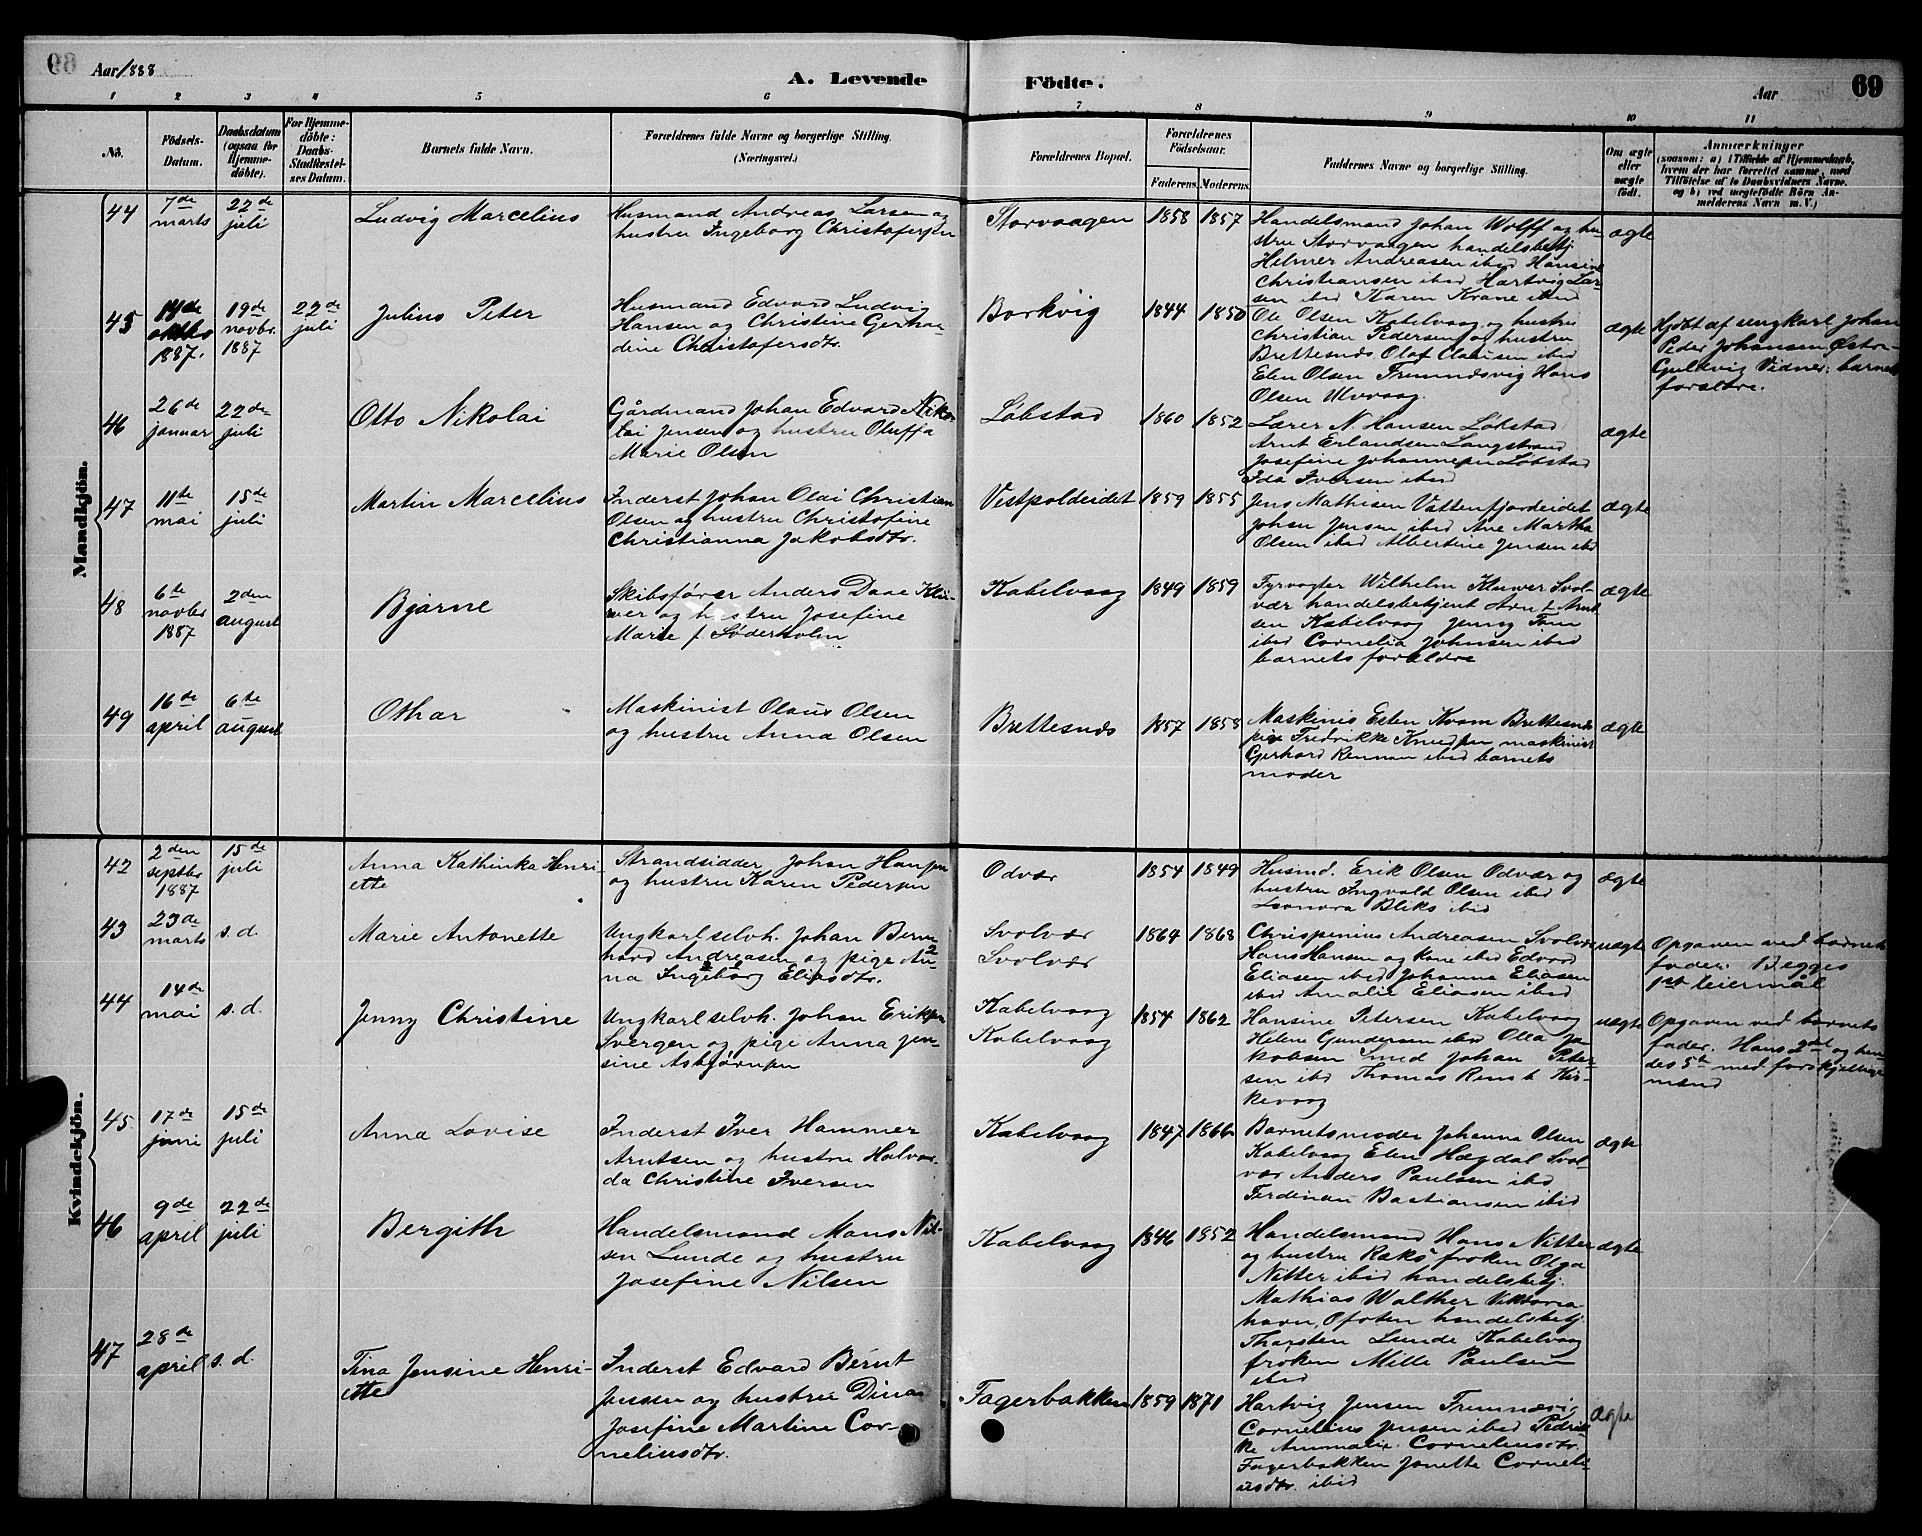 68 Aar 1888
A. Levende Fødte.
Aar 69
1 2 3 4 5 6 7 8 9 10 11
No.
Födsels-Datum.
Daabsdatum (ogsaa for Hjemmedöbte).
For Hjemmedöbte: Daabs-Stadfæstelses Datum.
Barnets fulde Navn.
Forældrenes fulde Navne og borgerlige Stilling.
(Næringsvei.)
Forældrenes Bopæl.
Forældrenes Födselsaar.
Faderens. Moderens.
Faddernes Navne og borgerlige Stilling.
Om ægte eller uægte födt.
Anmærkninger
(saasom: a) i Tilfælde af Hjemmedaab,
hvem der har forrettet samme, med
Tilföielse af to Daabsvidners Navne.
og b) ved uægtefödte Börn An-
melderens Navn m. V.)
Mandkjön.
44 7de marts 22de juli
Ludvig Marcelius
Husmand Andreas Larsen og
hustru Ingeborg Christofersen
Storvaagen 1858 1857
Handelsmand Johan Wolff og hu-
stru Storvaagen handelsbetj.
Helmer Andreasen ibid Hansine
Christiansen ibid Hartvig Lar-
sen ibid Karen Krane ibid
ægte
45 oktbr 1887. 19de novbr. 1887 22de juli
Julius Peter
Husmand Edvard Ludvig
Hansen og Christine Gerhar-
dine Christofersdtr.
Borkvig 1844 1850
Ole Olsen Kabelvaag og hustru
Christian Pedersen og hustru
Brettesnæs Olaf Clausen ibid
Elen Olsen Hans
Olsen Ulvvaag
ægte
Hjdøbt af ungkarl Johan
Peder Johansen Østre-
Gulvig Vidner: barnets
forældre.
46 26de januar 22de juli
Otto Nikolai
Gårdmand Johan Edvard Niko-
lai Jensen og hustru Oluffa
Marie Olsen
Løbstad 1860 1852
Lærer N. Hansen Løkstad
Arnt Erlandsen Langstrand
Josefine Johannesen Løbstad
Ida Iversen ibid
ægte
47 11te mai 15de juli
Martin Marcelius
Inderst Johan Olai Christian
Olsen og hustru Christofine
Christianna Jakobsdtr.
Vestpoldeidet 1859 1855
Jens Mathisen Vattenfjordeidet
Johan Jensen ibid Ane Martha
Olsen ibid Albertine Jensen ibid
ægte
48 6te novbr 1887 2den august
Bjarne
Skibsfører Anders Daae Klü-
wer og hustru Josefine
Marie f. Søderholm
Kabelvaag 1849 1859
Fyrvogter Wilhelm Kluwer Svol-
vær handelsbetjent Arnt Arnt
sen Kabelvaag Jenny
ibid Cornelia Johnsen ibid
barnets forældre
ægte
49 16de april 6te august
Othar
Maskinist Olaus Olsen
og hustru Anna Olsen
Brettesnæs 1857 1858
Maskinis Esten Kvam Brettesnæs
pige Fredrikke Knudsen maskinist
Gerhard Rennan ibid barnets
moder
ægte
Kvindekjön.
42 2den septbr 1887 15de juli
Anna Kathinka Henri-
ette
Strandsidder Johan Hansen
og hustru Karen Pedersen
Odvær 1854 1849
Husmd. Erik Olsen Odvær og
hustru Ingvald Olsen ibid
Leonora Bliks ibid
ægte
43 23de marts s.d.
Marie Antonette
Ungkarl selvh. Johan Bern-
hard Andreasen og pige An-
na Ingeborg Eliasdtr.
Svolvær
Svolvær
1864 1868
Chrispinius Andreasen Svolvær
Hans Hansen og kone ibid Edvard
Eliasen ibid Johanna Eliasen
ibid Amalie Eliasen ibid
uægte
Opgaven ved barnets
fader. Begges
1ste leiermål
44 14de mai s.d.
Jenny Christine
Ungkarl selvh. Johan Eriksen
Svergen og pige Anna Jen-
sine Asbjørnsen
Kabelvaag
Kabelvaag
1854 1862
Hansine Petersen Kabelvaag
Helene Gundersen ibid Olea Ja-
kobsen Smed Johan Peter-
sen ibid Thomas Kir-
kevaag
uægte
Opgaven ved barnets
fader. Hans 2det og hen-
des 5te med forskjellige
mænd
45 17de juni 15de juli
Anna Lovise
Inderst Iver Hammer
Arntsen og hustru Halvar-
da Christine Iversen
Kabelvaag 1847 1866
Barnets moder Johanna Olsen
Kabelvaag Elen Hægdal Svol-
vær Anders Paulsen ibid
Ferdinan Bastiansen ibid
ægte
46 9de april 22de juli
Bergith
Handelsmand Mons Nil-
sen Lunde og hustru
Josefine Nilsen
Kabelvaag 1846 1852
Handelsmand Hans Nitter
og hustru frøken Olga
Nitter ibid handelsbetj.
Mathias Walther Viktoria
havn, Ofoten handelsbetj.
Thorsten Lunde Kabelvaag
frøken Mille Paulsen
ibid
ægte
47 28de april s.d.
Tina Jensine Henri-
ette
Inderst Edvard Bernt
Jenssen og hustru Dina
Josefine Martine Cor-
neliusdtr.
Fagerbakken 1859 1871
Hartvig Jensen
Cornelius Jensen ibid Pedrik-
ke Annmarie Corneliusdtr.
Fagerbakken Jonette Corneli-
usdtr. ibid
ægte